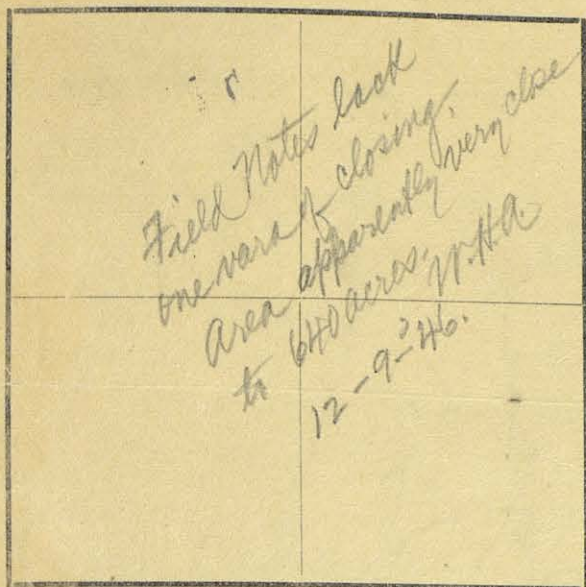 Field Notes lack
one vara of closing.
Area apparently very close
to 640 acres. W.H.A.
12-9-46.